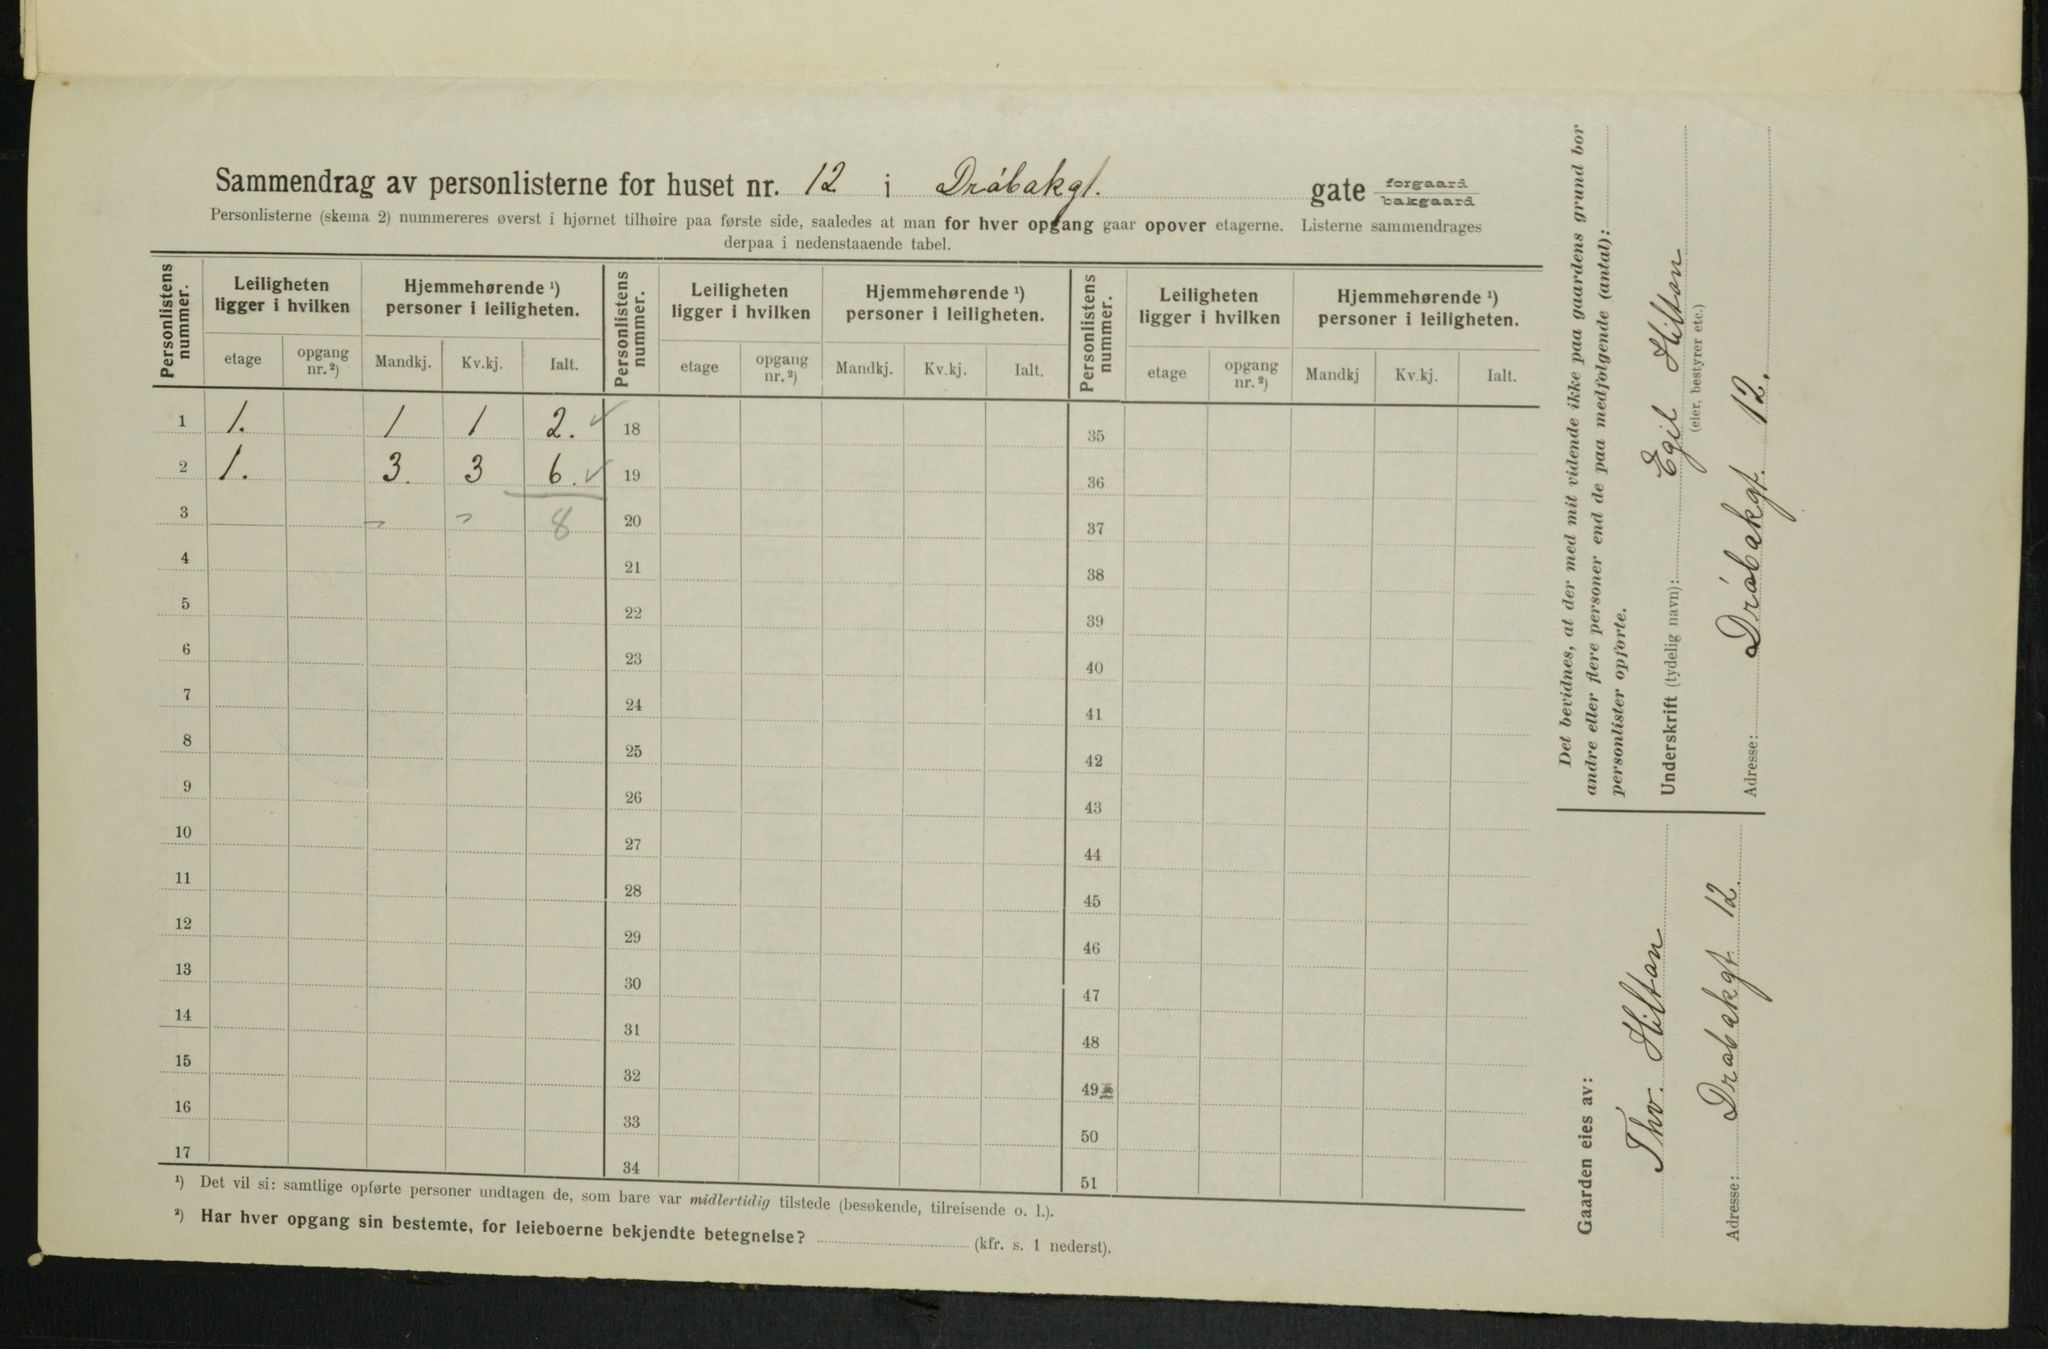 Sammendrag av personlisterne for huset nr. 12 i Drøbakgt. gate forgaard bakgaard
Personlisterne (skema 2) nummereres øverst i hjørnet tilhøire paa første side, saaledes at man for hver opgang gaar opover etagerne. Listerne sammendrages
derpaa i nedenstaaende tabel.
Personlistens nummer. Leiligheten ligger i hvilken Hjemmehørende ¹) personer i leiligheten. Personlistens nummer. Leiligheten ligger i hvilken Hjemmehørende ¹) personer i leiligheten. Personlistens nummer. Leiligheten ligger i hvilken Hjemmehørende ¹) personer i leiligheten.
etage opgang nr. ²) Mandkj. Kv.kj. Ialt. etage opgang nr. ²) Mandkj. Kv.kj. Ialt. etage opgang nr. ²) Mandkj Kv.kj. Ialt.
1 1. 1 1 2. ✓ 18 35
2 1. 3. 3 6. ✓ 19 36
3 " " 8 20 37
4 21 38
5 22 39
6 23 40
7 24 41
8 25 42
9 26 43
10 27 44
11 28 45
12 29 46
13 30 47
14 31 48
15 32 49
16 33 50
17 34 51
¹) Det vil si: samtlige opførte personer undtagen de, som bare var midlertidig tilstede (besøkende, tilreisende o. l.).
²) Har hver opgang sin bestemte, for leieboerne bekjendte betegnelse? (kfr. s. 1 nederst).
Det bevidnes, at der med mit vidende ikke paa gaardens grund bor
andre eller flere personer end de paa medfølgende (antal):
personlister opførte.
Underskrift (tydelig navn): Egil Hiltan
(eier, bestyrer etc.)
Adresse: Drøbakgt. 12.
Gaarden eies av:
Thv. Hiltan
Adresse: Drøbakgt 12.